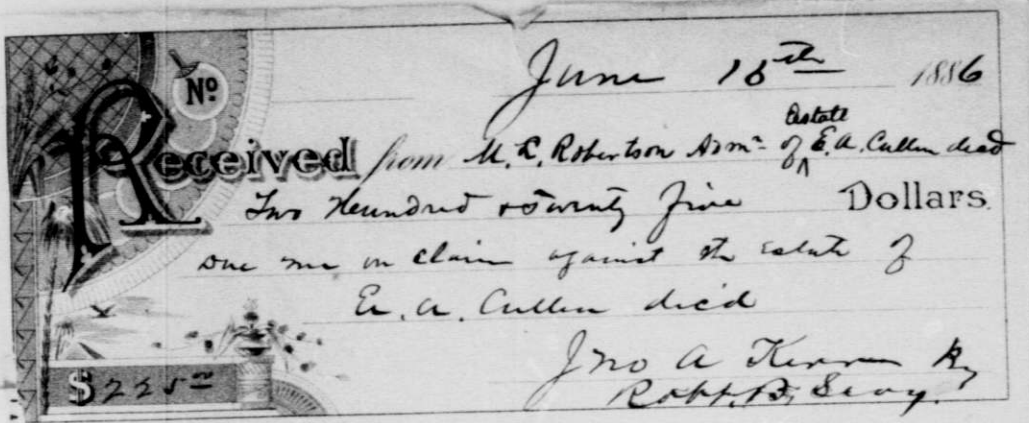 No
June 15th 1886
Received from M. L. Robertson Adm. of Estate E. A. Cullen decd
Two Hundred & Twenty five Dollars.
Due me on claim against the estate of
E. A. Cullen dec'd
Jno A By
Robt. B.
$225 00